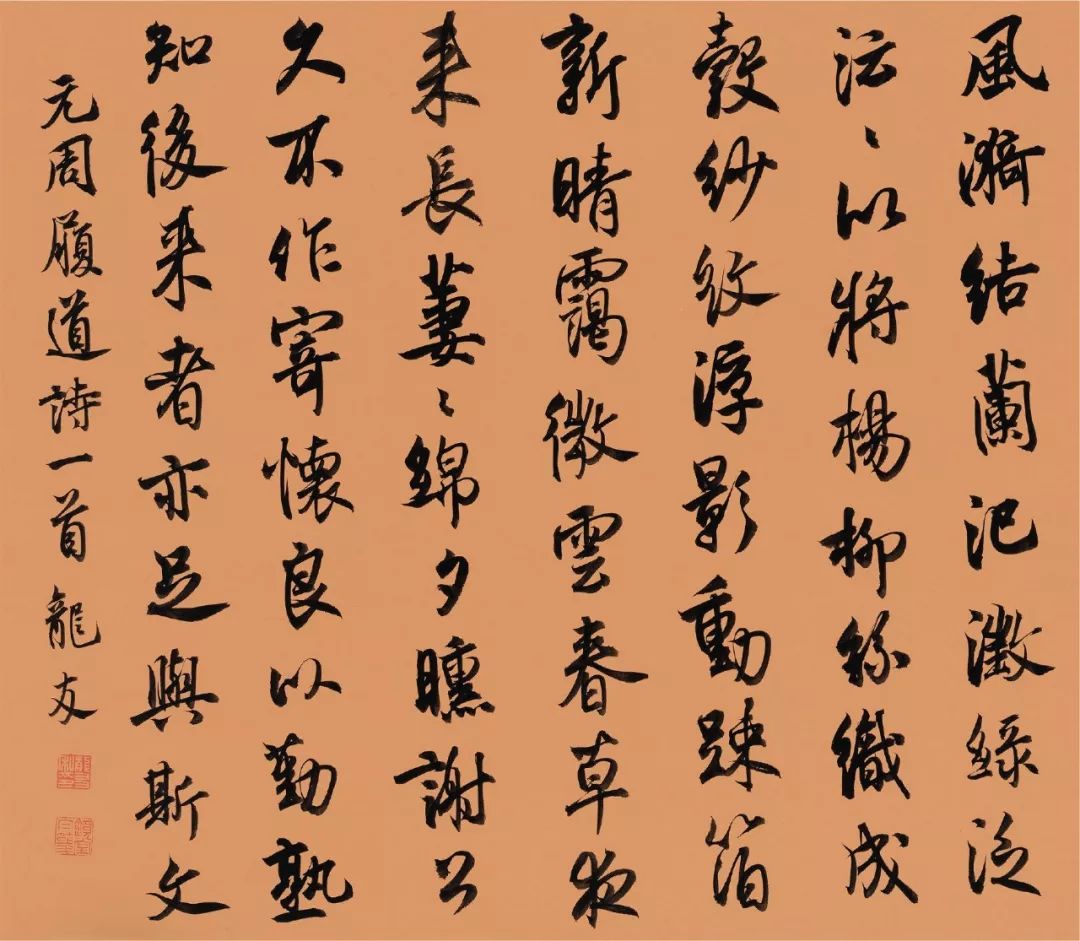 風漪結蘭汜澂綠泛
沄〻以將楊柳絲織成
縠紗紋浮影動疎箔
新晴靄微雲春草夜
来長萋〻綿夕曛謝公
久不作寄懷良以勤孰
知後来者亦足與斯文
元周履道詩一首龍友